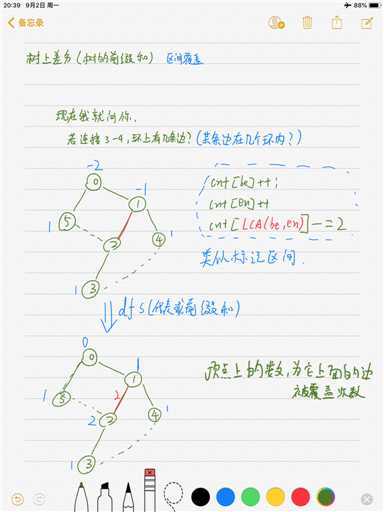 20:39 9月2日 周一
88%
备忘录
树上差分(树的前缀和) 区间覆盖
现在我就问你.
若连接 3-4, 环上有几条边? (某条边在几个环内?)
-2
0
-1
1
1
5
2
4
1
1
3
cnt[be]++;
cnt[en]++
cnt[LCA(be,en)]-=2
类似标记区间.
dfs(代表求前缀和)
0
0
1
1
2
1
5
2
2
4
1
1
3
顶点上的数,为它上面的边
被覆盖次数